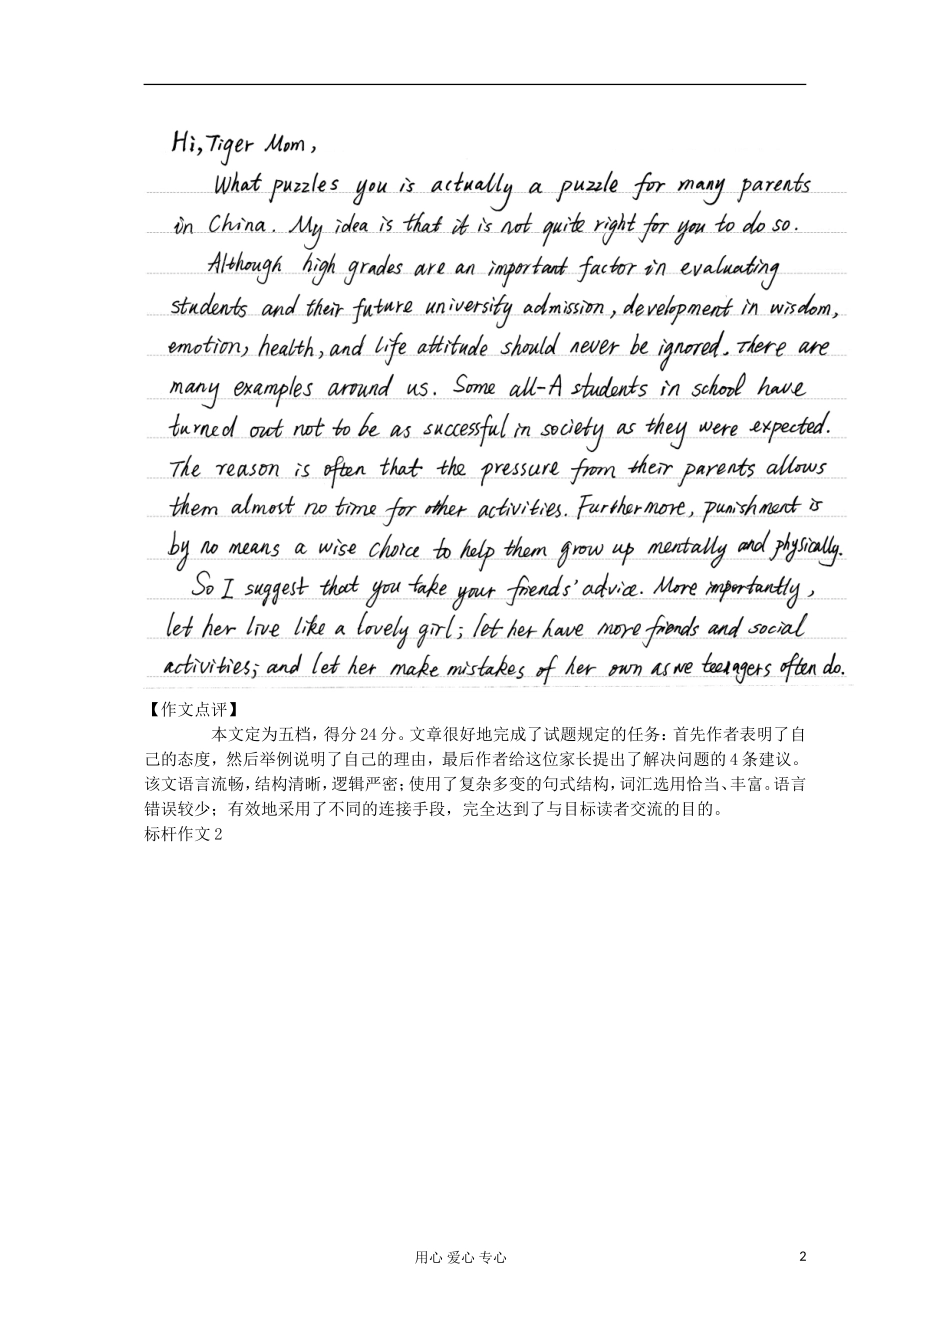 Hi, Tiger Mom,
What puzzles you is actually a puzzle for many parents
in China. My idea is that it is not quite right for you to do so.
Although high grades are an important factor in evaluating
students and their future university admission, development in wisdom,
emotion, health, and life attitude should never be ignored. There are
many examples around us. Some all-A students in school have
turned out not to be as successful in society as they were expected.
The reason is often that the pressure from their parents allows
them almost no time for other activities. Furthermore, punishment is
by no means a wise choice to help them grow up mentally and physically.
So I suggest that you take your friends' advice. More importantly,
let her live like a lovely girl; let her have more friends and social
activities; and let her make mistakes of her own as we teenagers often do.
【作文点评】
本文定为五档，得分 24 分。文章很好地完成了试题规定的任务：首先作者表明了自
己的态度，然后举例说明了自己的理由，最后作者给这位家长提出了解决问题的 4 条建议。
该文语言流畅，结构清晰，逻辑严密；使用了复杂多变的句式结构，词汇选用恰当、丰富。语言
错误较少；有效地采用了不同的连接手段，完全达到了与目标读者交流的目的。
标杆作文 2
用心 爱心 专心 2